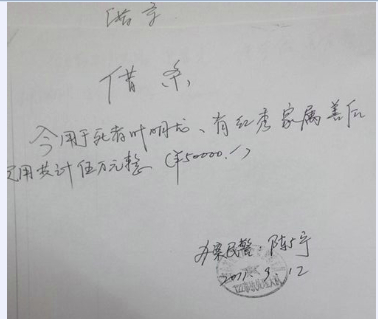 借条
今用于死者叶明龙、有红秀家属善后
费用共计伍万元整(¥50000./)
办案民警:陈宇
2011.9.12